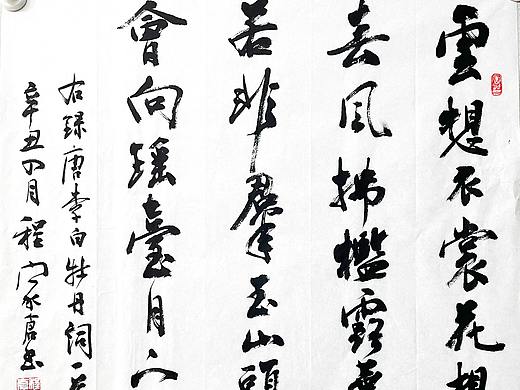 雲想衣裳花想
春风拂檻露華
若非羣玉山頭
會向瑤臺月下
右錄唐李白牡丹詞一首
辛丑四月程书